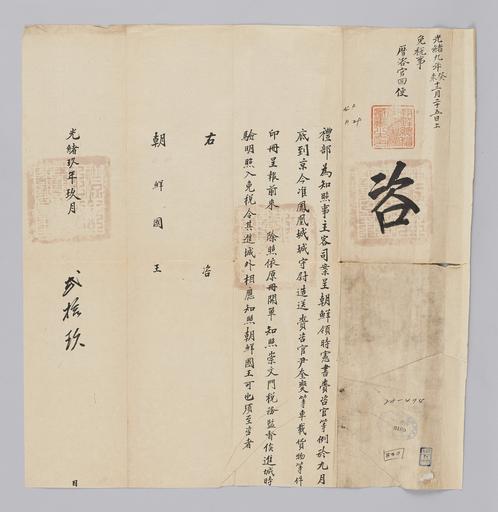 光緒九年癸未十二月二十五日上
免稅事
曆咨官回便
咨
禮部為知照事主客司案呈朝鮮領時憲書賫咨官等例於九月
底到京今准鳳凰城城守尉造送賫咨官尹泰燮等車載貨物等件
印冊呈報前來 除照依原冊開單知照崇文門稅務監督俟進城時
驗明照入免稅令其進城外相應知照朝鮮國王可也須至咨者
右 咨
朝鮮國王
光緒玖年玖月 貳拾玖 日